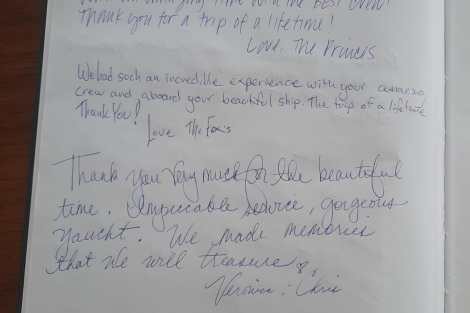 time with the best crew!
Thank you for a trip of a lifetime!
Love, The Princes
We had such an incredible experience with your
crew and aboard your beautiful ship. The trip of a lifetime
Thank You!
Love The Fox's
Thank you very much for the beautiful
time. Impeccable service, gorgeous
yaucht. We made memories
that we will treasure
Veronica : Chris